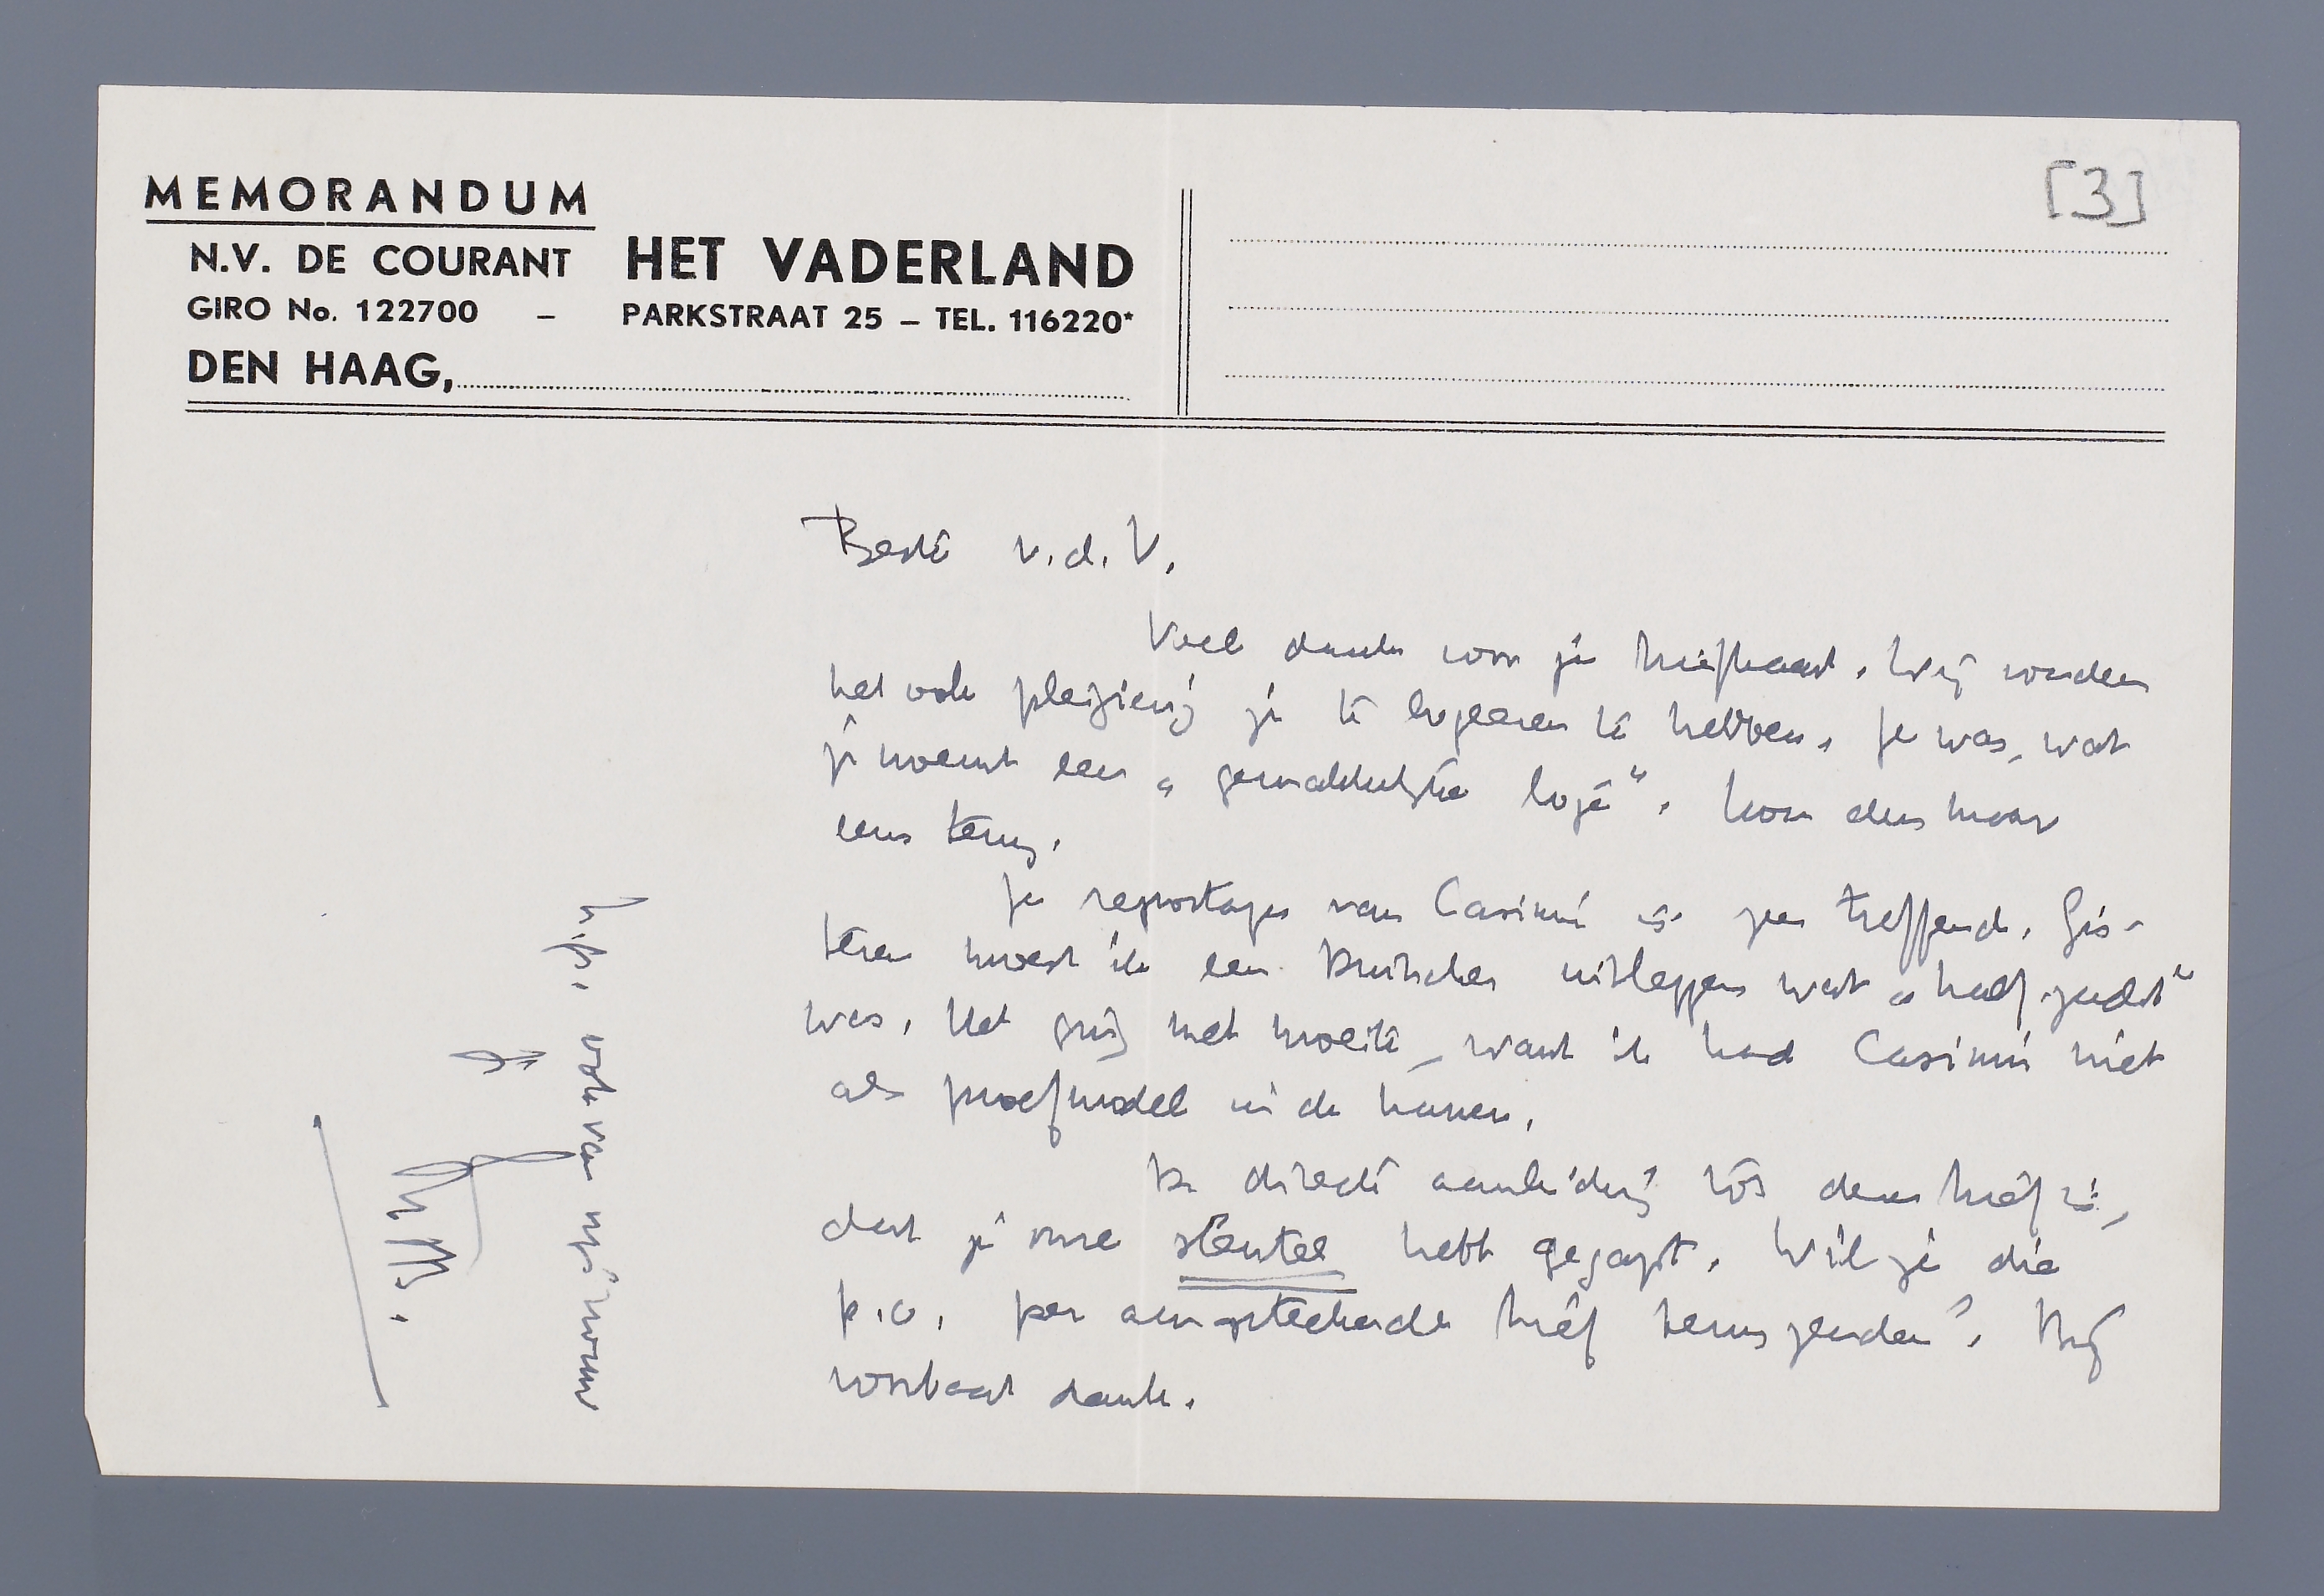 MEMORANDUM
N.V. DE COURANT HET VADERLAND
GIRO No. 122700 – PARKSTRAAT 25 – TEL. 116220*
DEN HAAG,
[3]
Beste v.d. V.
Veel dank voor je briefkaart. Wij vonden
het ook plezierig je te logeeren te hebben. Je was, wat
je noemt een „gemakkelijke logé“. Kom dus maar
eens terug.
Je reportage van Casimir is zeer treffend. Gis-
teren moest ik een Duitscher uitleggen wat „half zacht“
was. Het ging met moeite, want ik had Casimir niet
als proefmodel in de kamer.
De directe aanleiding tot dezen brief is,
dat je onze sleutel hebt gegapt. Wil je die
p.o. per aangeteekende brief terug zenden? Bij
voorbaat dank.
h.gr. ook van mijn vrouw
je